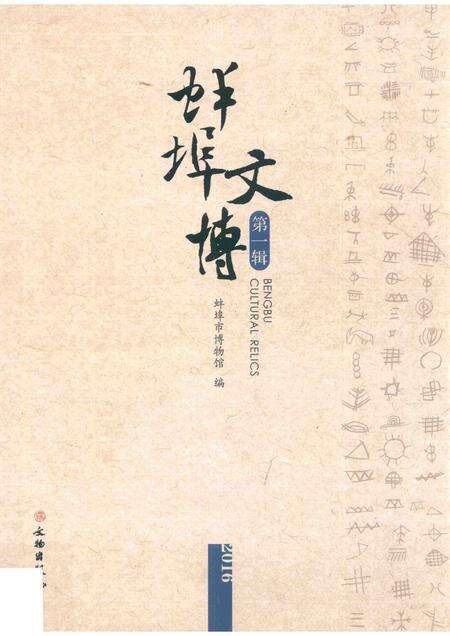 蚌埠
文博
第一辑
BENGBU
CULTURAL RELICS
蚌埠市博物馆 编
文物出版
2016